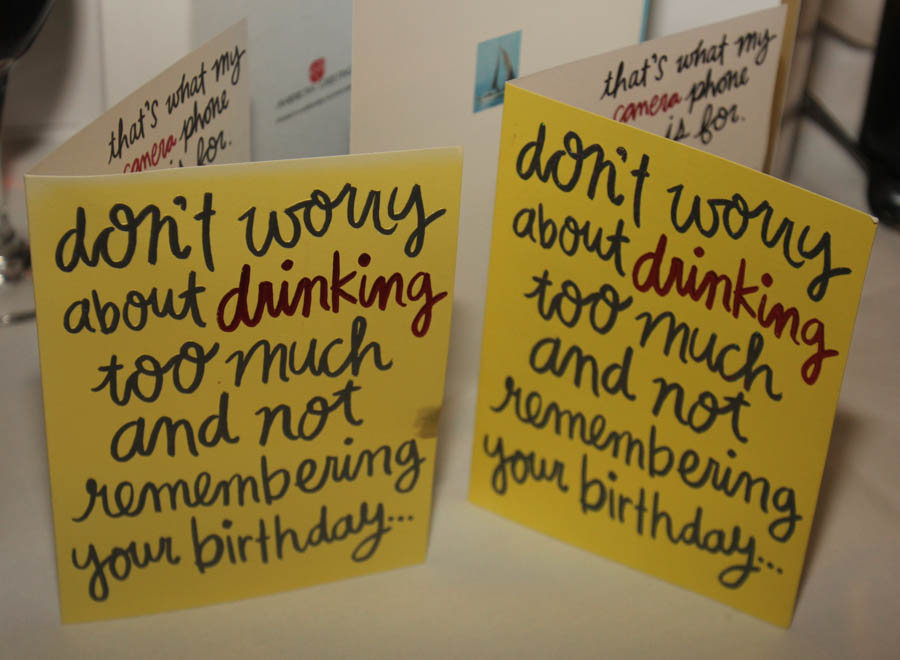 that's what my
camera phone
is for.
don't worry
about drinking
too much
and not
remembering
your birthday...
that's what my
camera phone
is for.
don't worry
about drinking
too much
and not
remembering
your birthday...